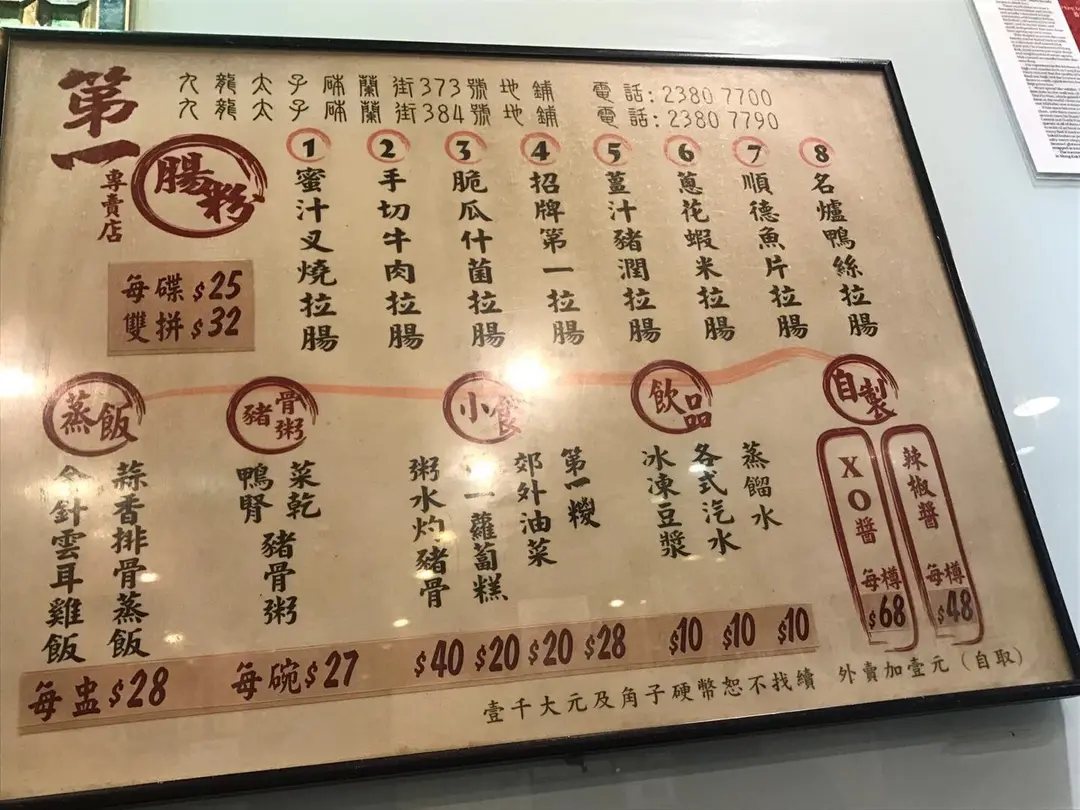 第一
腸粉
專賣店
九龍太子砵蘭街373號地鋪 電話:2380 7700
九龍太子砵蘭街384號地鋪 電話:2380 7790
每碟$25
雙拼$32
1 蜜汁叉燒拉腸
2 手切牛肉拉腸
3 脆瓜什菌拉腸
4 招牌第一拉腸
5 薑汁豬潤拉腸
6 蔥花蝦米拉腸
7 順德魚片拉腸
8 名爐鴨絲拉腸
蒸飯
蒜香排骨蒸飯
金針雲耳雞飯
每盅$28
豬骨粥
菜乾
鴨腎
豬骨粥
每碗$27
小食
第一糉
郊外油菜
一蘿蔔糕
粥水灼豬骨
$40 $20 $20 $28
飲品
蒸餾水
各式汽水
冰凍豆漿
$10 $10 $10
自製
辣椒醬 每樽 $48
XO醬 每樽 $68
壹千大元及角子硬幣恕不找續 外賣加壹元(自取)